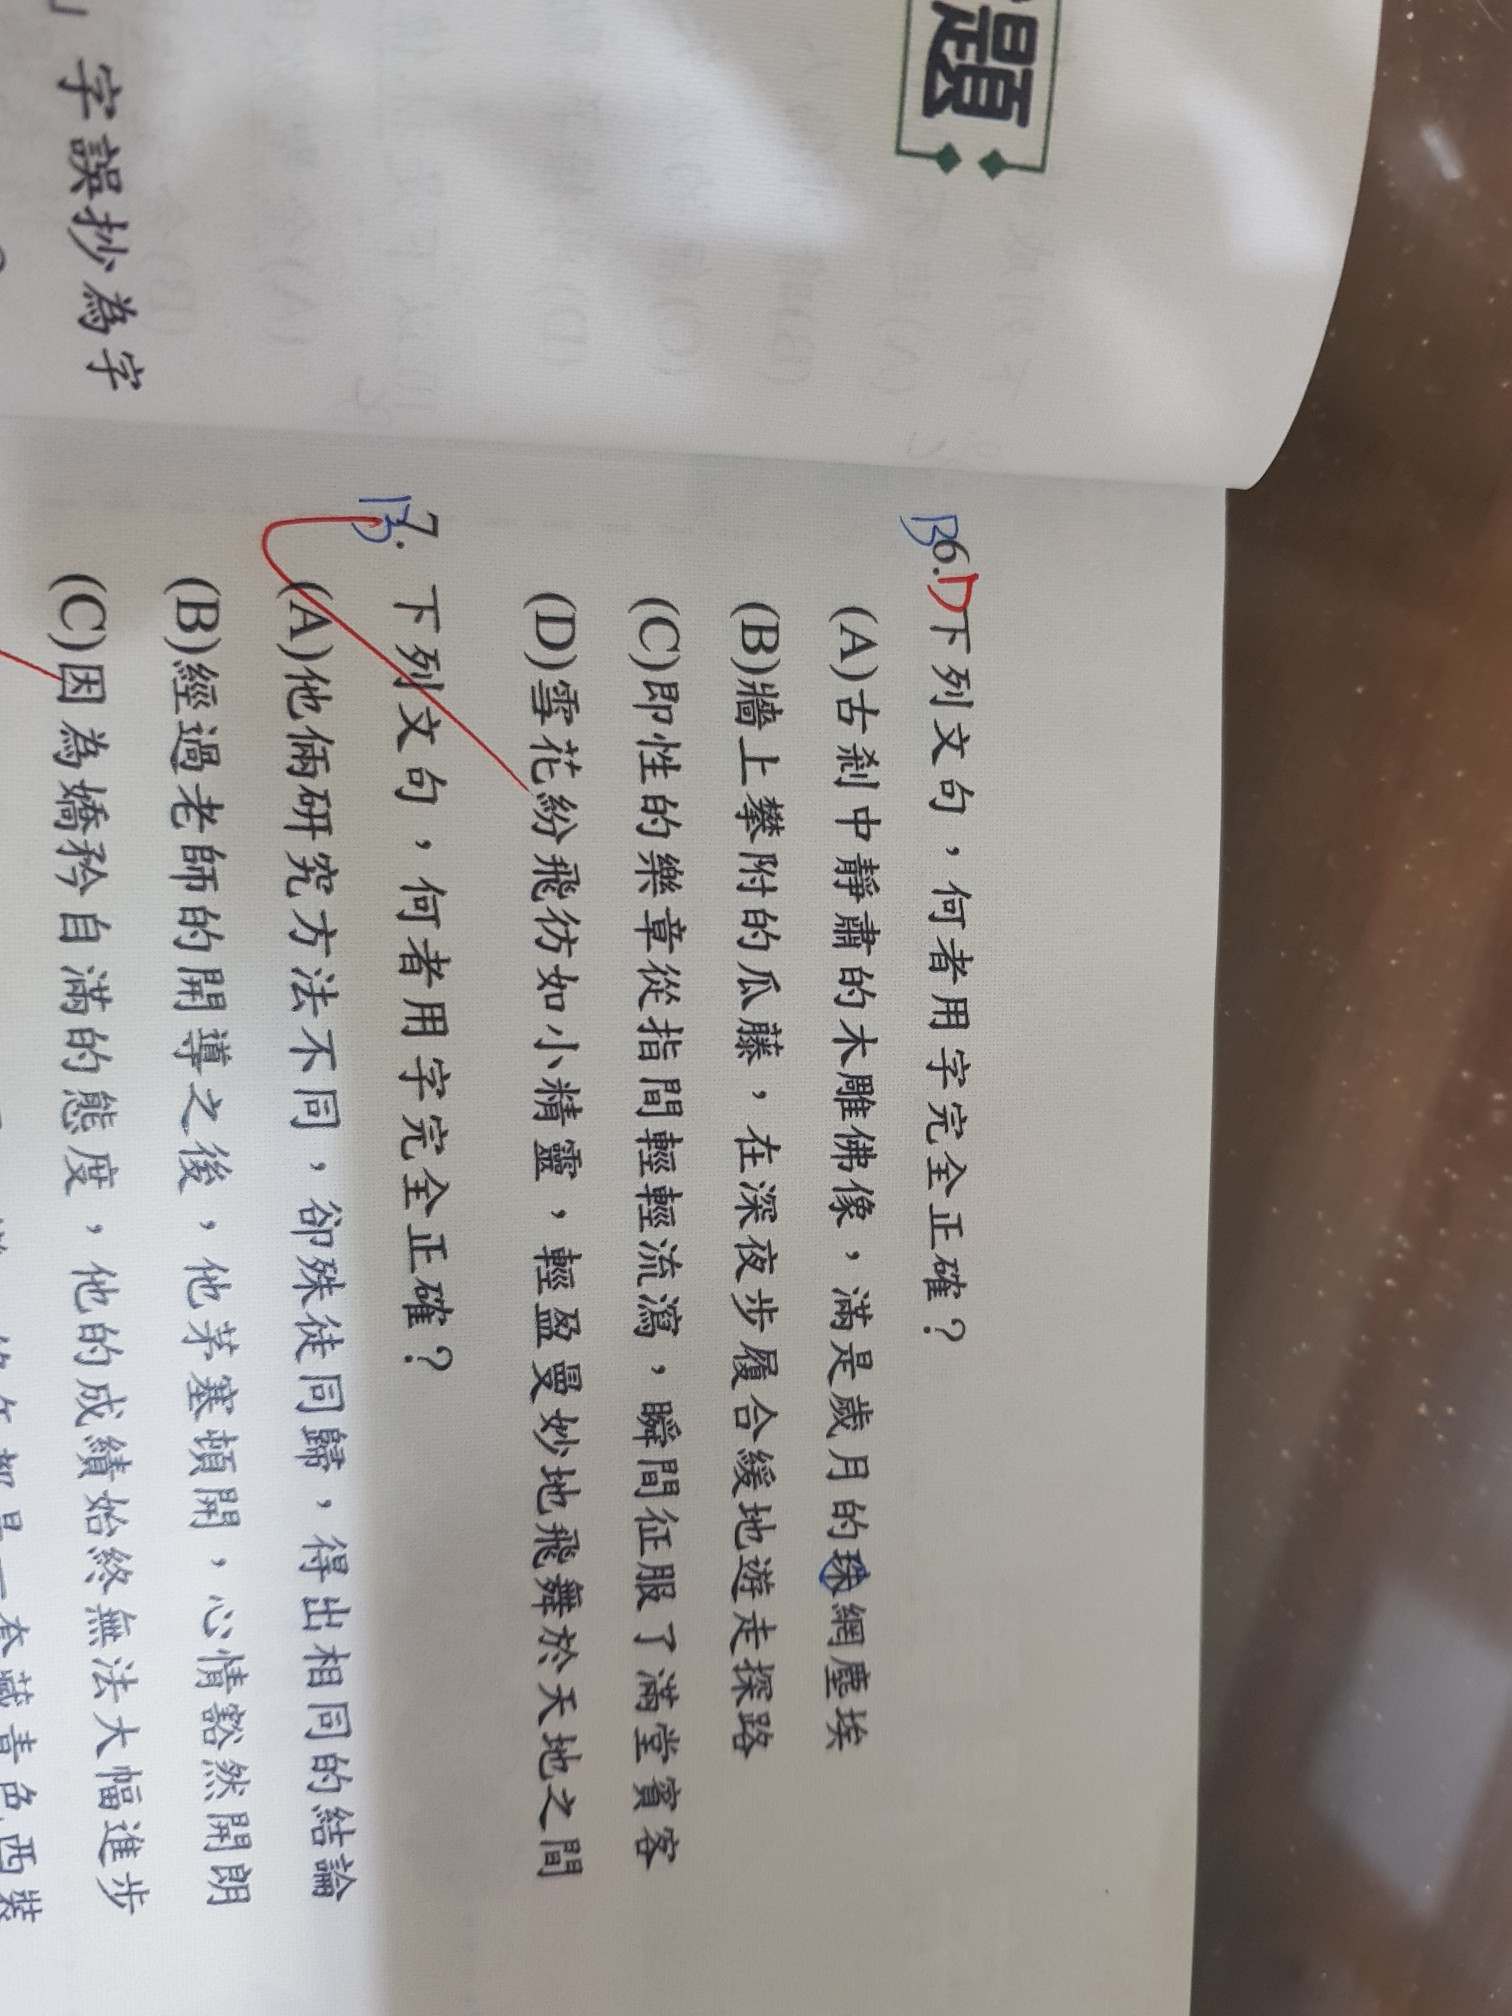 題
」字誤抄為字
B 6. D 下列文句，何者用字完全正確？
(A)古剎中靜肅的木雕佛像，滿是歲月的珠網塵埃
(B)牆上攀附的瓜藤，在深夜步履合緩地遊走探路
(C)即性的樂章從指間輕輕流瀉，瞬間征服了滿堂賓客
(D)雪花紛飛彷如小精靈，輕盈曼妙地飛舞於天地之間
B 7. 下列文句，何者用字完全正確？
(A)他倆研究方法不同，卻殊徒同歸，得出相同的結論
(B)經過老師的開導之後，他茅塞頓開，心情豁然開朗
(C)因為嬌矜自滿的態度，他的成績始終無法大幅進步
年都是一套藏青色西裝